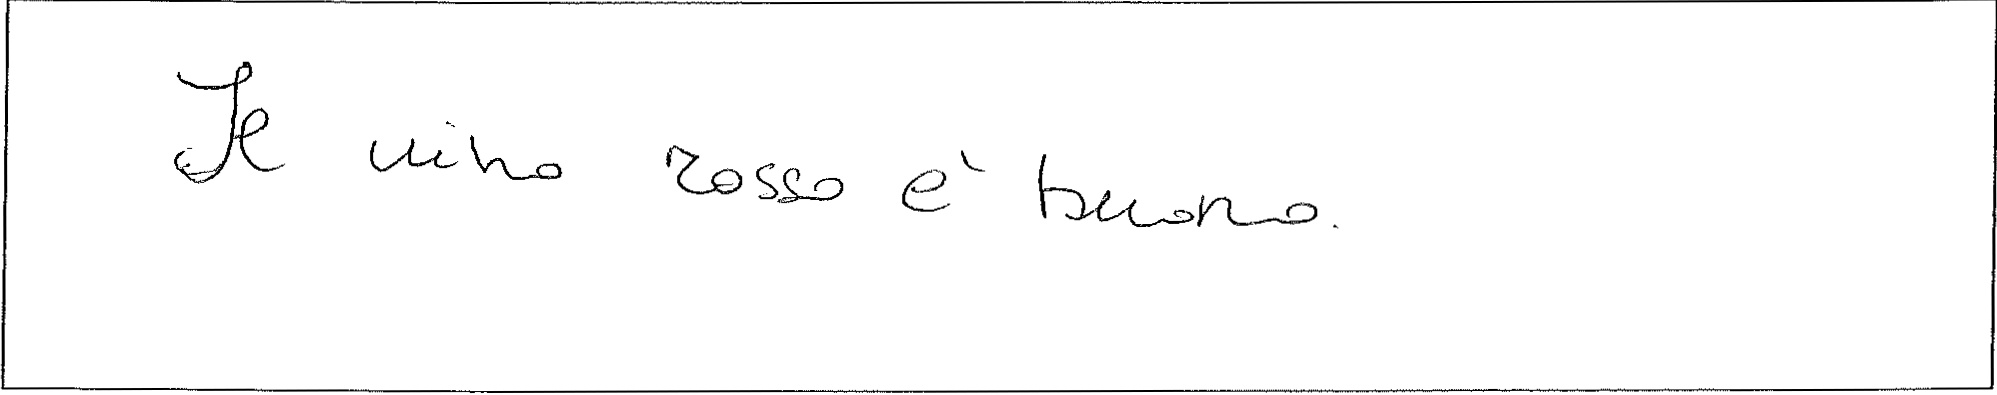 Il vino rosso è buono.